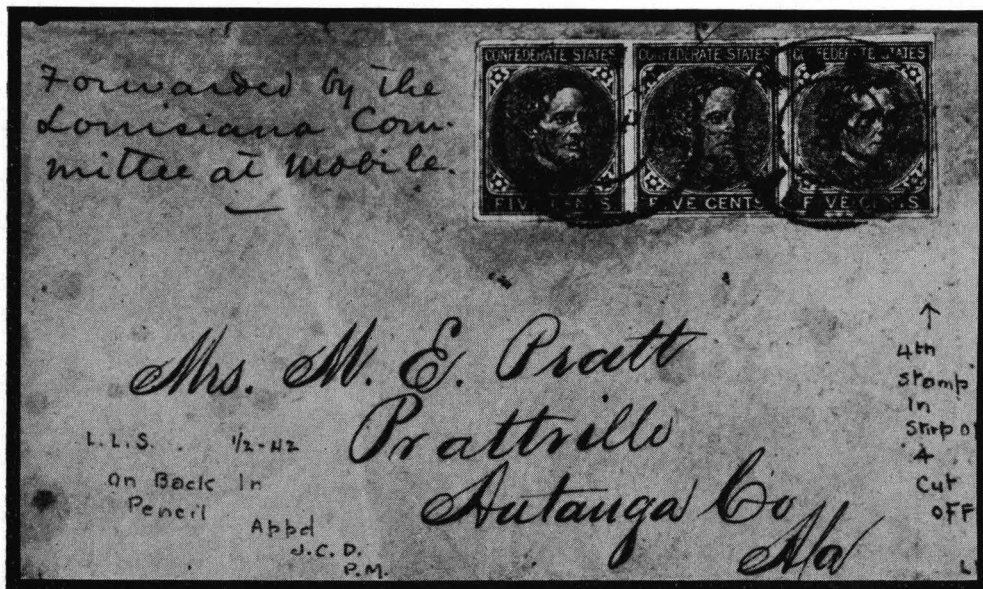 Forwarded by the
Louisiana Com-
mittee at Mobile.
CONFEDERATE STATES
FIVE CENTS
CONFEDERATE STATES
FIVE CENTS
CONFEDERATE STATES
FIVE CENTS
Mrs. M. E. Pratt
Prattville
Autauga Co
Ala
L.L.S. 1/2-42
on Back In
Pencil
Appd
J.C.D.
P.M.
↑
4th
stamp
In
Strip of
4
Cut
OFF